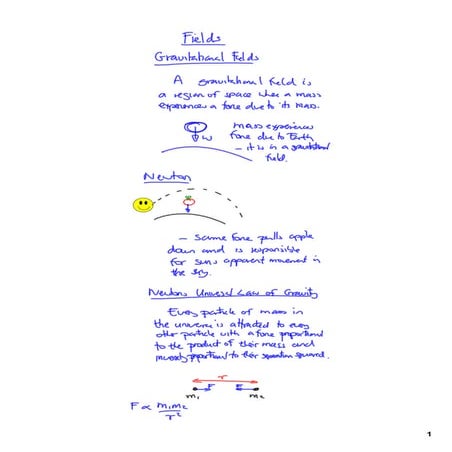 Fields
Gravitational Fields
A gravitational field is
a region of space where a mass
experiences a force due to its mass.
mass experiences
force due to Earth
- it is in a gravitational
field.
W
Newton
- same force pulls apple
down and is responsible
for suns apparent movement in
the sky.
Newtons Universal Law of Gravity
Every particle of mass in
the universe is attracted to every
other particle with a force proportional
to the product of their mass and
inversely proportional to their separation squared.
r
F F
m₁ m₂
F ∝ m₁m₂
r²
1